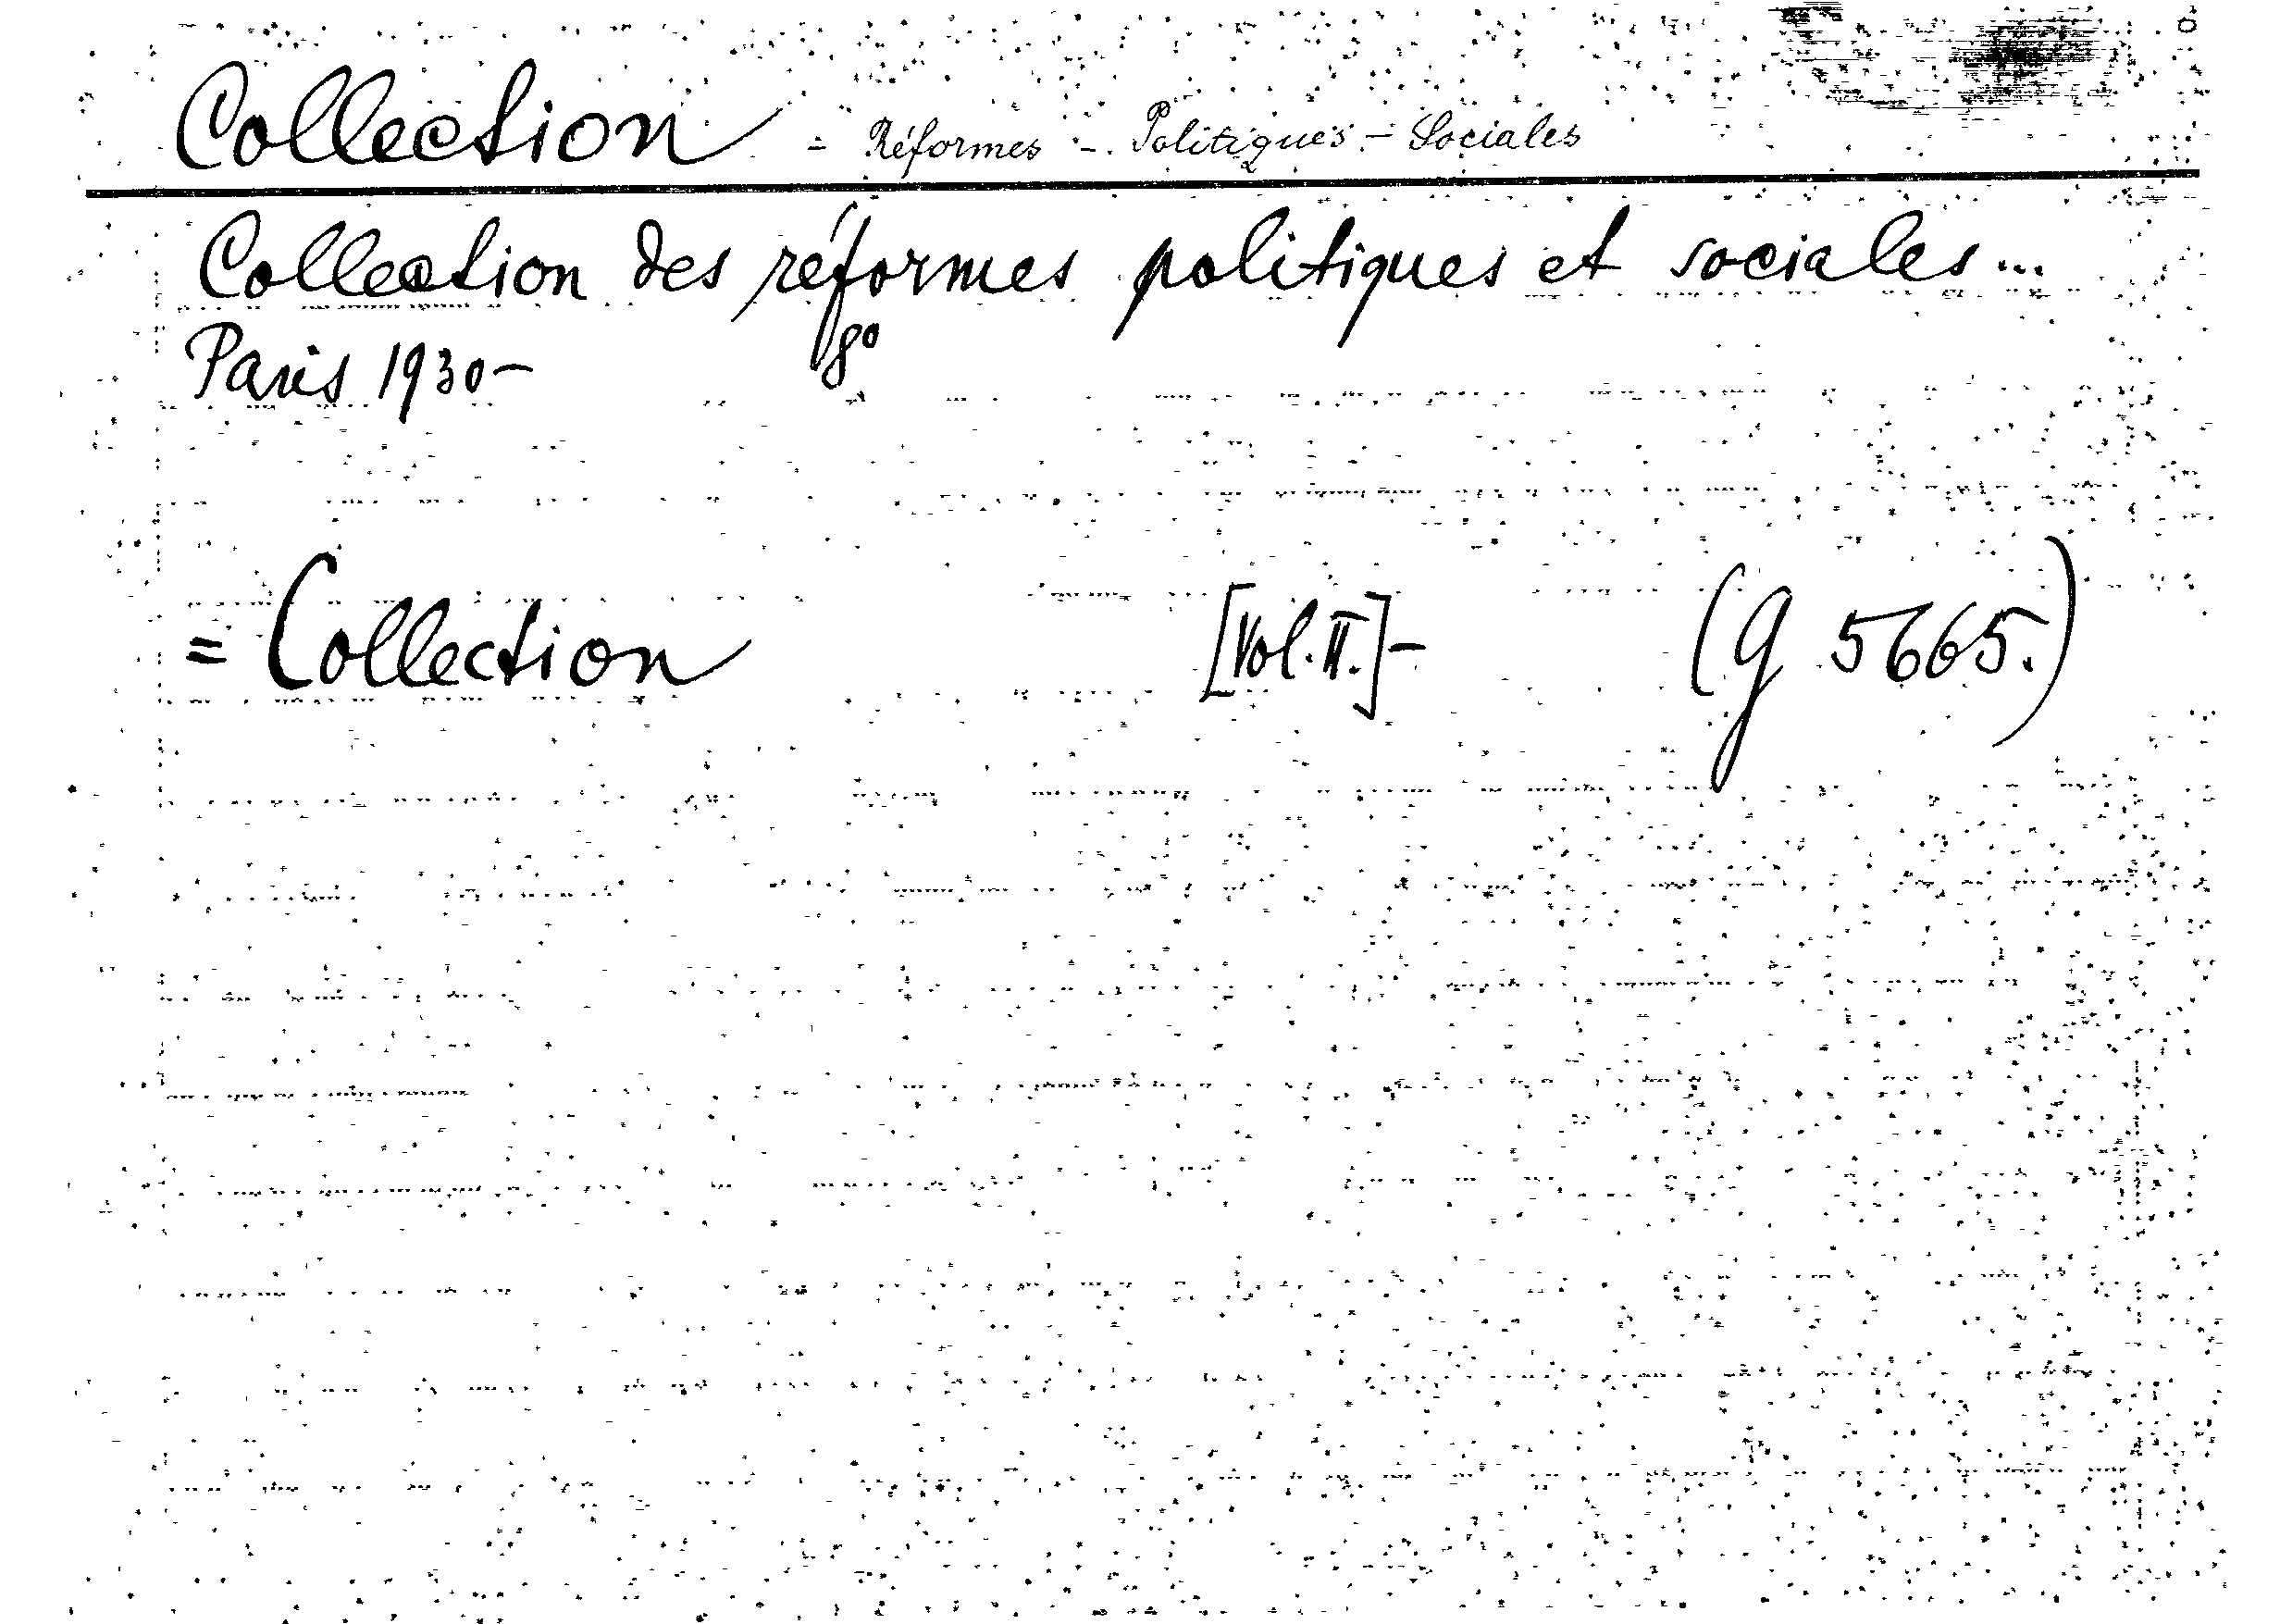 Collection = Réformes - Politiques - Sociales
Collection des réformes politiques et sociales...
Paris 1930- 8°
= Collection [Vol. II.]- (g 5665.)